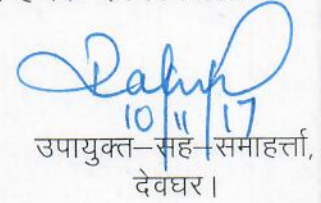 10/11/17
उपायुक्त–सह–समाहर्त्ता,
देवघर।